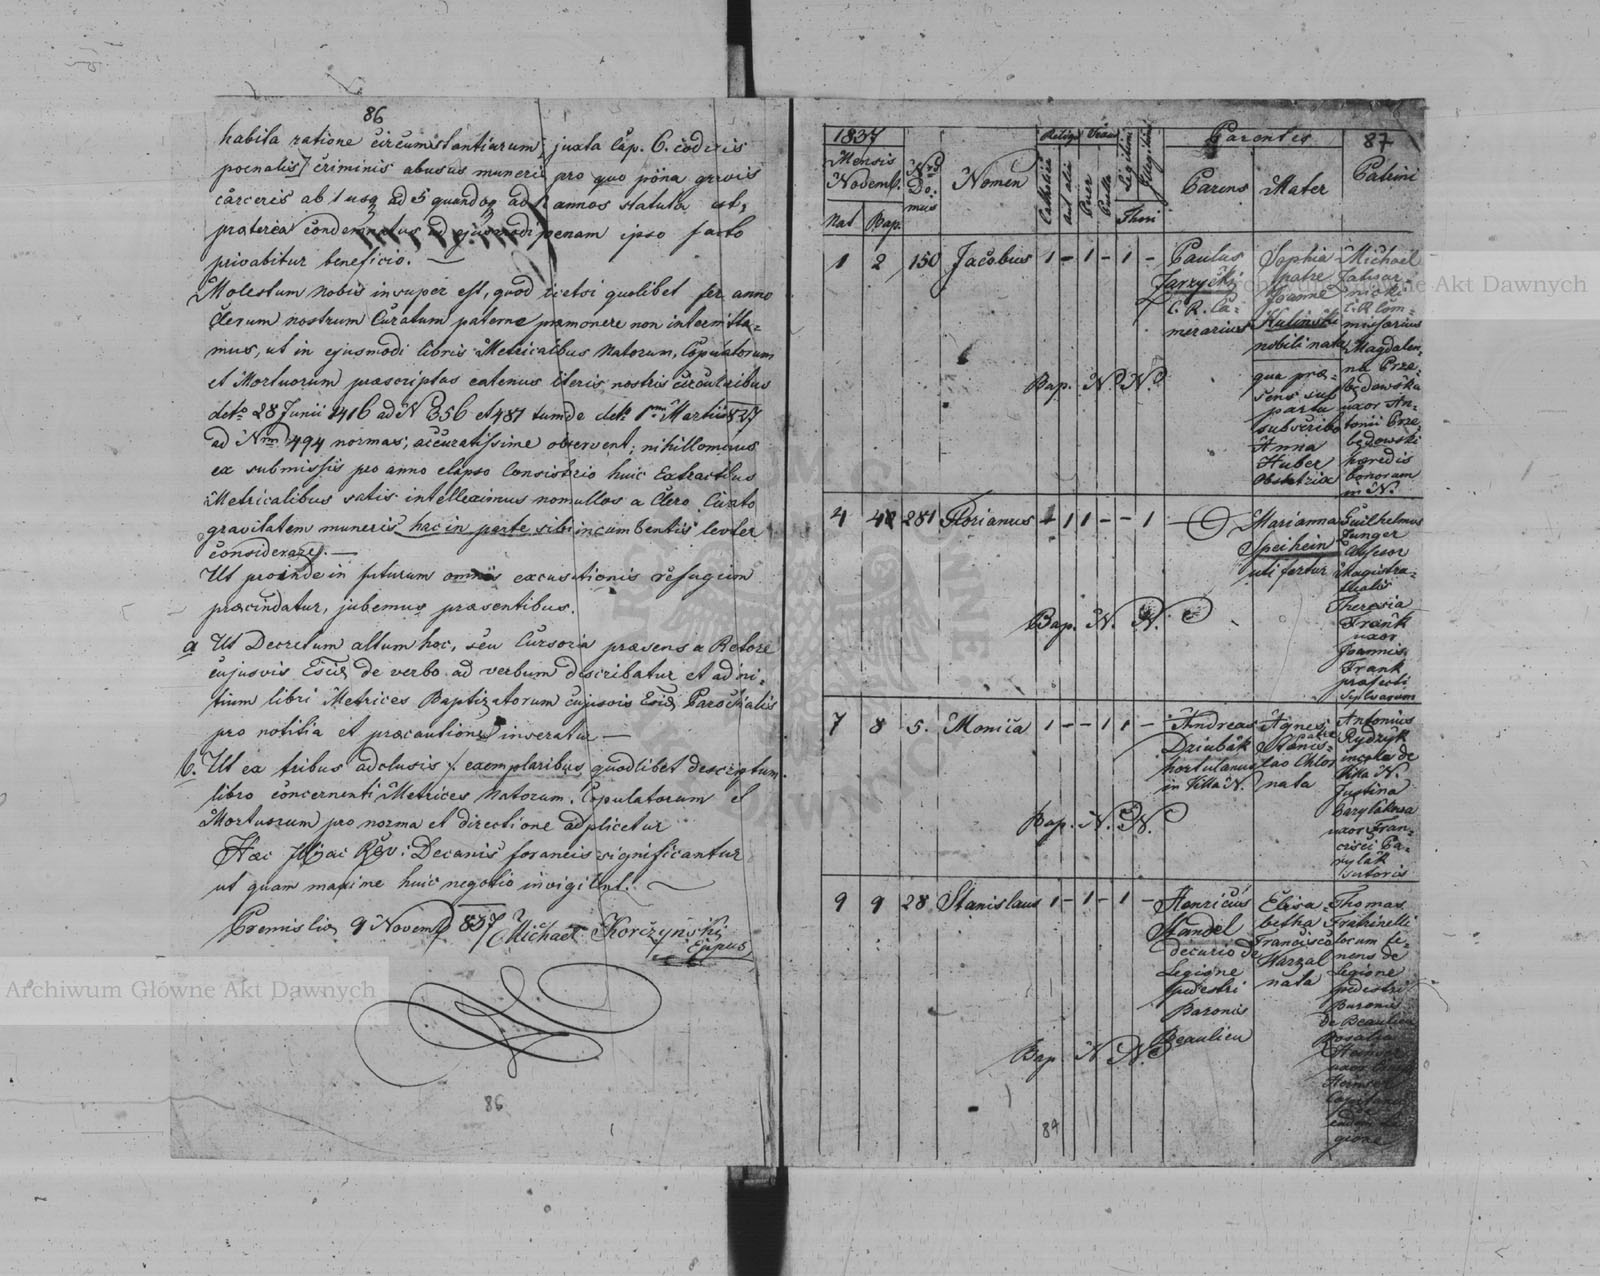 86
habita ratione circumstantiarum, juxta Cap. 6. codicis
poenalis criminis abusus muneris pro quo pöna gravis
carceris ab 1 usq ad 5 quandoq ad annos statuta est,
praterea condemnatus ad ejusmodi penam ipso facto
privabitur beneficio. —
Molestum nobis insuper est, quod licetsi quolibet fer anno
Clerum nostrum Curatum paterne præmonere non intermitta=
mus, ut in ejusmodi libris Metricalbus Natorum, Copulatorum
et Mortuorum præscriptas eatenus literis nostris circularibus
ddto 28 Junii 1816 ad N 656 et 481 tum de ddto 1ma Martii 837
ad Nrm 494 normas, accuratissime observent; nihillominus
ex submissis pro anno elapso Consistorio huic Extractibus
Metricalibus satis intelleximus nonnullos a Clero Curato
gravitatem muneris hac in parte sibi incumbentis leviter
considerare. —
Ut proinde in futurum omnis excusationis refugium
præcindatur, jubemus præsentibus.
a Ut Decretum altum hoc, seu Cursoria præsens a Retore
cujusvis de verbo ad verbum describatur et ad ini=
tium libri Metrices Baptizatorum cujusvis Parochialis
pro notitia et præcautione inseratur —
b. Ut ex tribus adclusis exemplaribus quodlibet descriptum
libro concernenti Metrices Natorum, Copulatorum et
Mortuorum pro norma et directione adplicetur
Hæc Decanis foraneis significantur
ut quam maxime huic negotio invigilent. —
Premislia 9 Novemb 837 Michael Korczyński
Eppus
86
1837
Mensis
Novemb.
Nat Bap.
Nrus
Do=
mus
Nomen
Religio
Catholica
Aut alia
Sexus
Puer
Puella
Legitimi
Illegitimi
Thori
Parentes
Parens
Mater
87
Patrini
1 2 150 Jacobus 1 – 1 – 1 –
Paulus
Jarzycki
C. R. Ca=
merarius
Sophia
patre
Joanne
Kulinski
nobili nata
quæ præ=
sens sup
partu
subscribo
Anna
Huber
Obstetrix
Michael
C. R. Com=
missarius
Magdalen=
na Prze=
będowska
uxor An=
tonii Prze
będowski
hæredis
bonorum
in N.
Bap. N. N.
4 4 281 Florianus 1 1 – – 1 –
Marianna
Speihein
uti fertur
Guilhelmus
Junger
Assesor
Magistra=
tualis
Theresia
Frank
uxor
Joannis
Frank
præfecti
sylvarum
Bap. N. N.
7 8 5. Monica 1 – – 1 1 –
Andreas
Dziubak
hortulanus
in Villa N.
Agnes
patre
Stanis=
lao Chlor
nata
Antonius
Rydzyk
incola de
Villa N.
Justina
uxor Fran=
cisci Ga=
rylak
sutoris
Bap. N. N.
9 9 28 Stanislaus 1 – 1 – 1 –
Henricus
Standel
decurio de
Legione
pedestri
Baronis
Beaulieu
Elisa=
betha
Francisco
Warzal
nata
Thomas
Frabinelli
locum te=
nens de
Legione
pedestri
Baronis
de Beaulieu
Rosalia
uxor
gione
Bap. N. N.
87
Archiwum Główne Akt Dawnych
Archiwum Główne Akt Dawnych